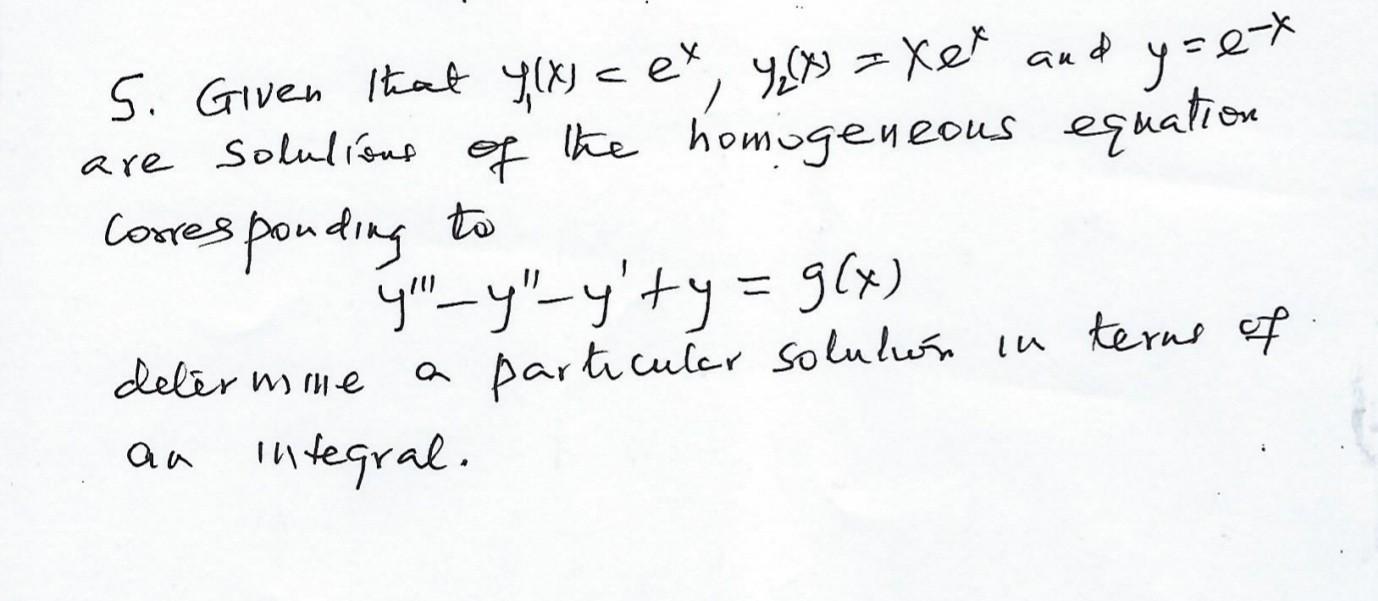 5. Given that y₁(x) = eˣ, y₂(x) = xeˣ and y = e⁻ˣ
are solutions of the homogeneous equation
corresponding to
y''' - y'' - y' + y = g(x)
determine a particular solution in terms of
an integral.